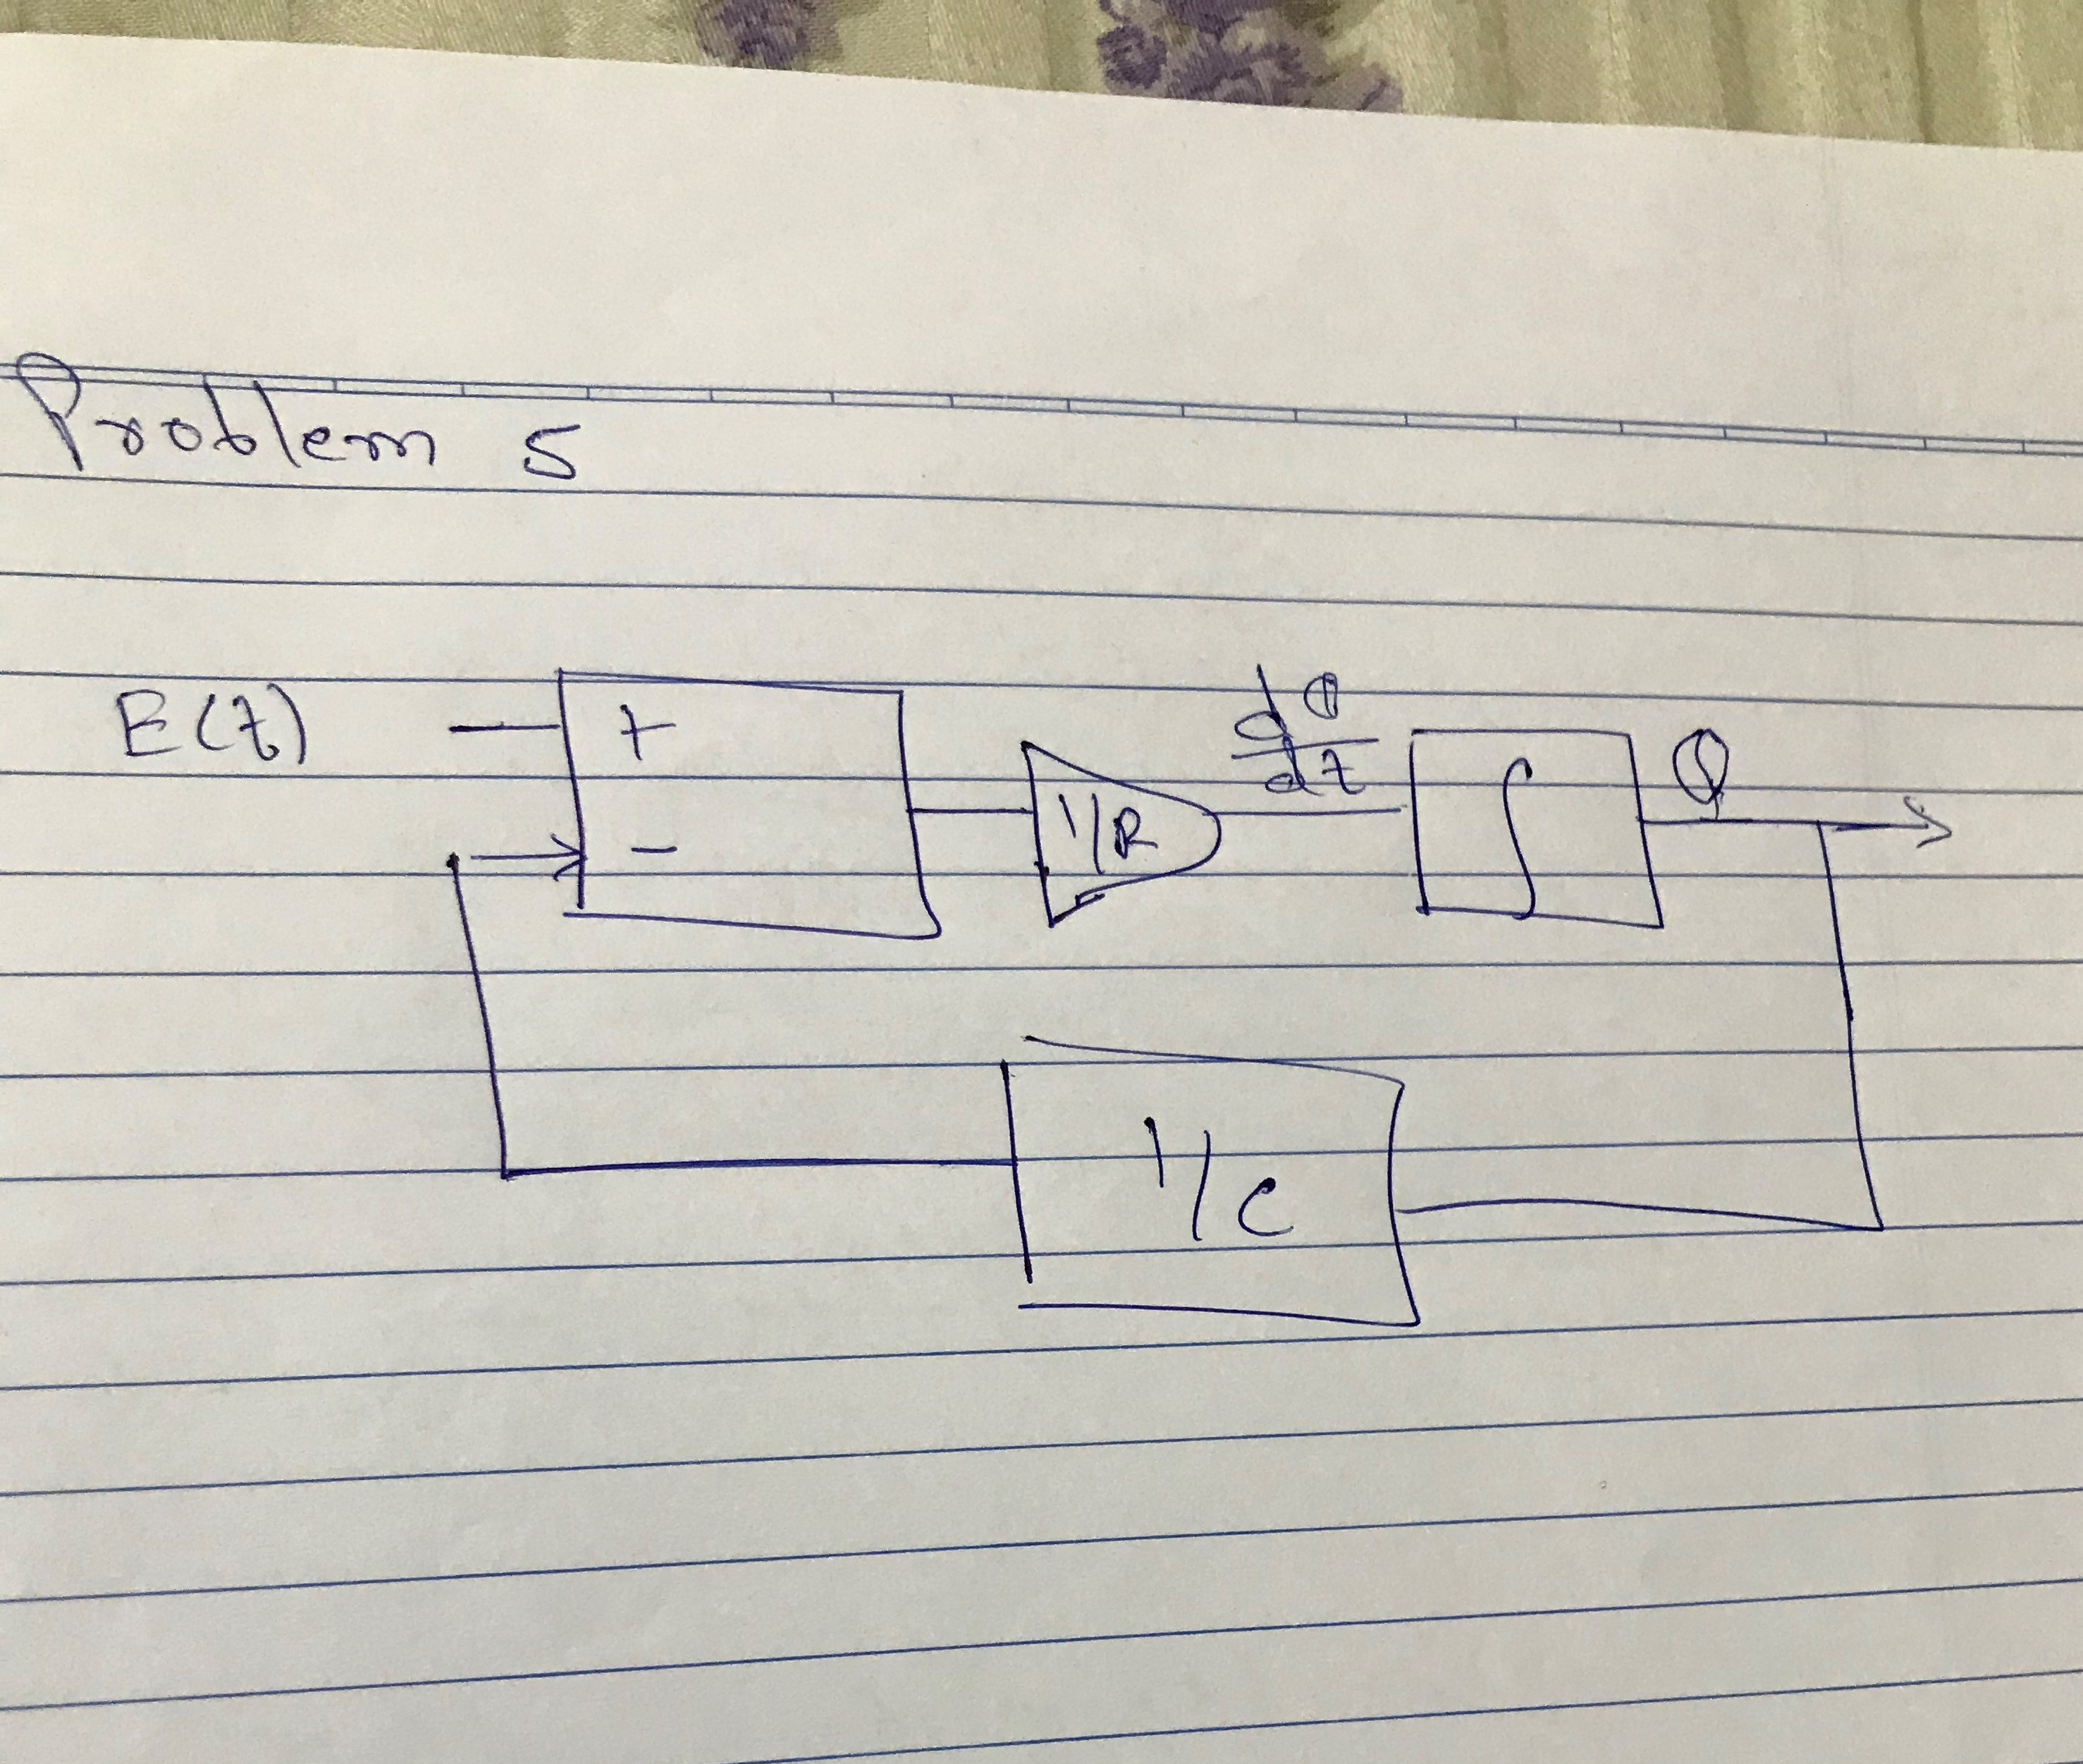 Problem 5
E(t)
+
-
1/R
dQ
dt
∫
Q
1/C